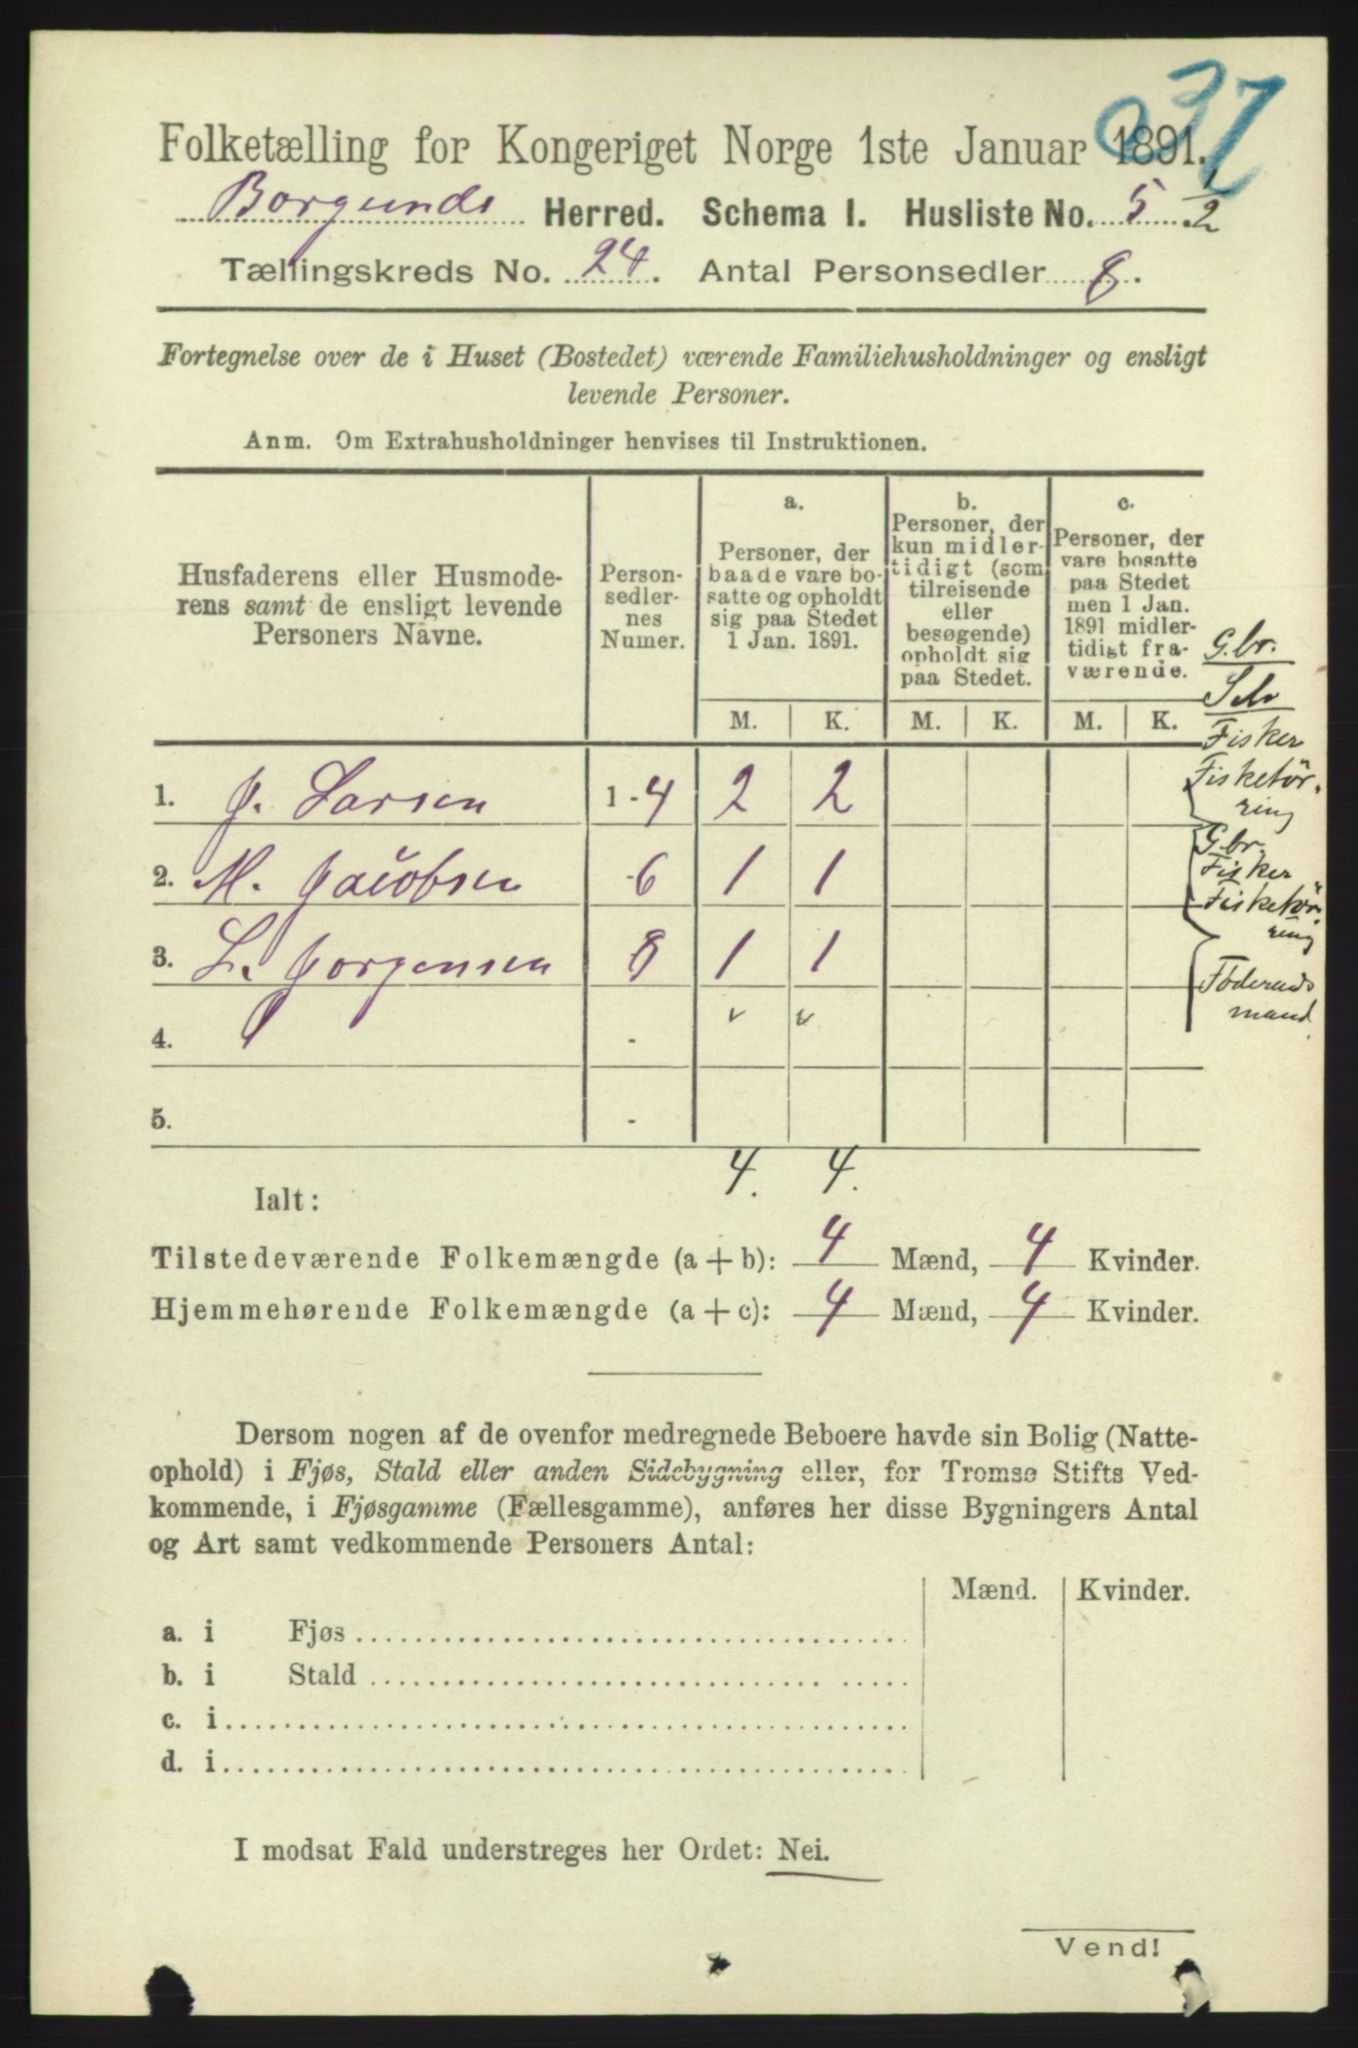 237
Folketælling for Kongeriget Norge 1ste Januar 1891.
Borgunds Herred. Schema I. Husliste No. 5 1/2
Tællingskreds No. 24. Antal Personsedler 8.
Fortegnelse over de i Huset (Bostedet) værende Familiehusholdninger og ensligt
levende Personer.
Anm. Om Extrahusholdninger henvises til Instruktionen.
Husfaderens eller Husmode-
rens samt de ensligt levende
Personers Navne.
Person-
sedler-
nes
Numer.
a.
Personer, der
baade vare bo-
satte og opholdt
sig paa Stedet
1 Jan. 1891.
b.
Personer, der
kun midler-
tidigt (som
tilreisende
eller
besøgende)
opholdt sig
paa Stedet.
c.
Personer, der
vare bosatte
paa Stedet
men 1 Jan.
1891 midler-
tidigt fra-
værende.
M. K. M. K. M. K.
G.br.
Selv
Fisker
Fisketör.
ring
1. J. Larsen 1-4 2 2
G.br.
Fisker
Fisketör.
ring
2. M. Jacobsen -6 1 1
3. L. Jorgensen 8 1 1
Föderaads
mand.
4. - v v
5. -
4. 4.
Ialt:
Tilstedeværende Folkemængde (a + b): 4 Mænd, 4 Kvinder.
Hjemmehørende Folkemængde (a + c): 4 Mænd, 4 Kvinder.
Dersom nogen af de ovenfor medregnede Beboere havde sin Bolig (Natte-
ophold) i Fjøs, Stald eller anden Sidebygning eller, for Tromsø Stifts Ved-
kommende, i Fjøsgamme (Fællesgamme), anføres her disse Bygningers Antal
og Art samt vedkommende Personers Antal:
Mænd. Kvinder.
a. i Fjøs
b. i Stald
c. i
d. i
I modsat Fald understreges her Ordet: Nei.
Vend!